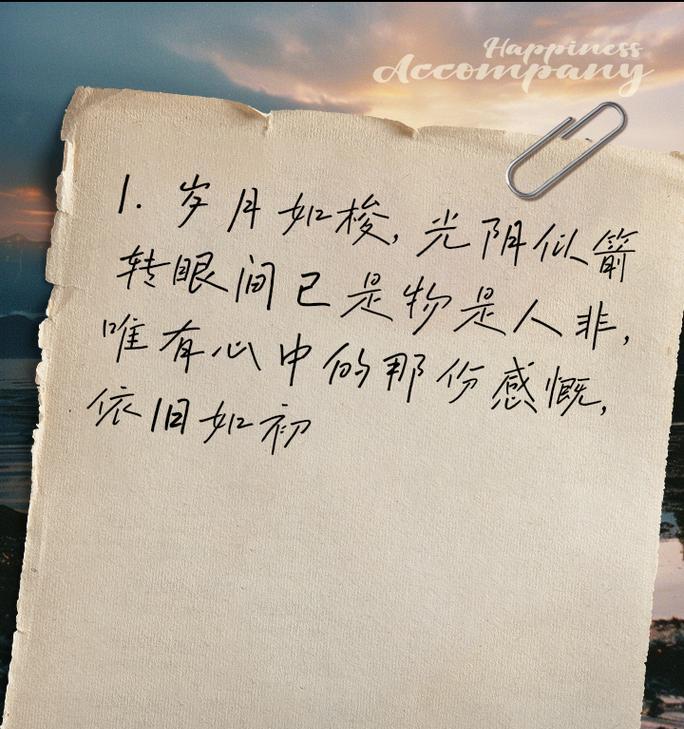 Happiness
Accompany
1. 岁月如梭,光阴似箭
转眼间已是物是人非,
唯有心中的那份感慨,
依旧如初